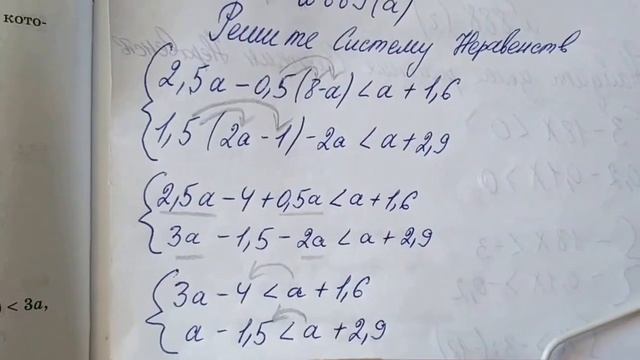 кото-
Решите Систему Неравенств
2,5a - 0,5(8-a) < a + 1,6
1,5(2a - 1) - 2a < a + 2,9
2,5a - 4 + 0,5a < a + 1,6
3a - 1,5 - 2a < a + 2,9
3a - 4 < a + 1,6
< 3a,
a - 1,5 < a + 2,9